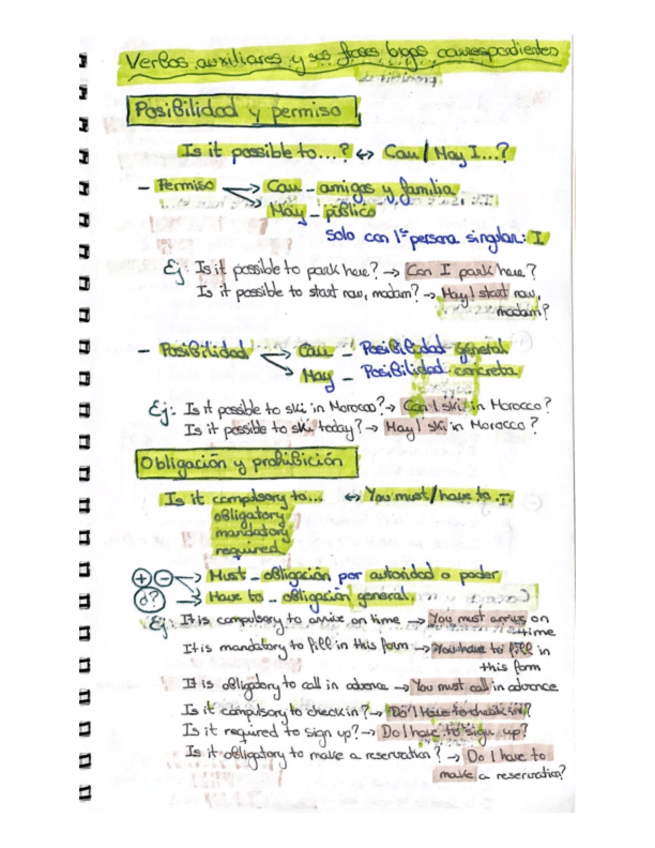 Verbos auxiliares y sus frases largas correspondientes
Posibilidad y permiso
Is it possible to...? ↔ Can / May I...?
- Permiso → Can - amigos y familia
→ May - público
Solo con 1ª persona singular: I
Ej: Is it possible to park here? → Can I park here?
Is it possible to start now, madam? → May I start now,
madam?
- Posibilidad → Can - Posibilidad general
→ May - Posibilidad concreta
Ej: Is it possible to ski in Morocco? → Can I ski in Morocco?
Is it possible to ski today? → May I ski in Morocco?
Obligación y prohibición
Is it compulsory to... ↔ You must / have to ...
obligatory
mandatory
required
+ - → Must - obligación por autoridad o poder
¿? → Have to - obligación general
Ej It is compulsory to arrive on time → You must arrive on
time
It is mandatory to fill in this form → You have to fill in
this form
It is obligatory to call in advance → You must call in advance
Is it compulsory to check in? → Do I have to check in?
Is it required to sign up? → Do I have to sign up?
Is it obligatory to make a reservation? → Do I have to
make a reservation?